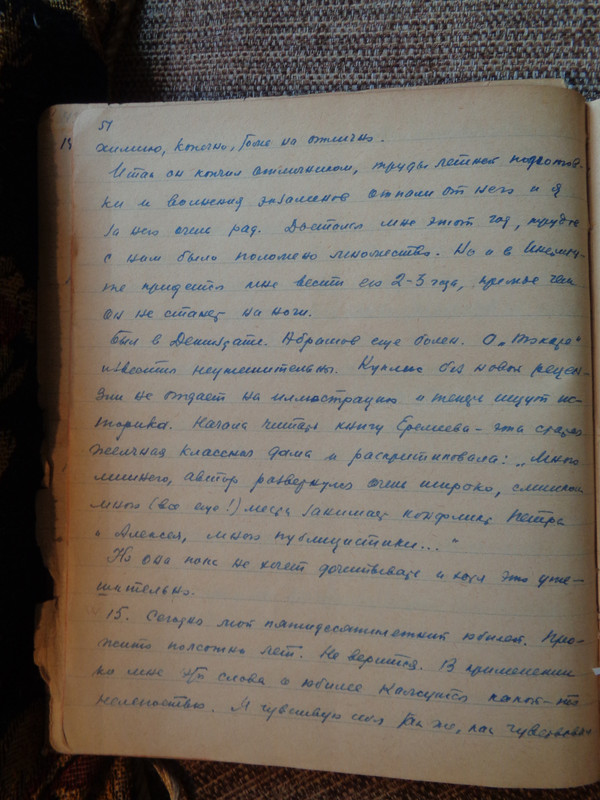 51
химию, конечно, тоже на отлично.
Итак он кончил отличником, труды летней подготов-
ки и волнения экзаменов отпали от него и я
за него очень рад. Достался мне этот год, трудов
с ним было положено множество. Но и в Институ-
те придется мне вести его 2-3 года, прежде чем
он не станет на ноги.
Был в Детиздате. Абрамов еще болен. О „Токаре"
известия неутешительны. Куклис без новой рецен-
зии не отдает на иллюстрацию и теперь ищут ис-
торика. Начала читать книгу Еремеева - эта старая
желчная классная дама и раскритиковала: „Много
лишнего, автор развернулся очень широко, слишком
много (все еще!) места занимает конфликт Петра
и Алексея, много публицистики..."
Но она пока не хочет дочитывать и хотя это уте-
шительно.
15. Сегодня мой пятидесятилетний юбилей. Про-
жито полсотни лет. Не верится. В применении
ко мне эти слова о юбилее кажутся какой-то
нелепостью. Я чувствую себя так же, как чувствовал